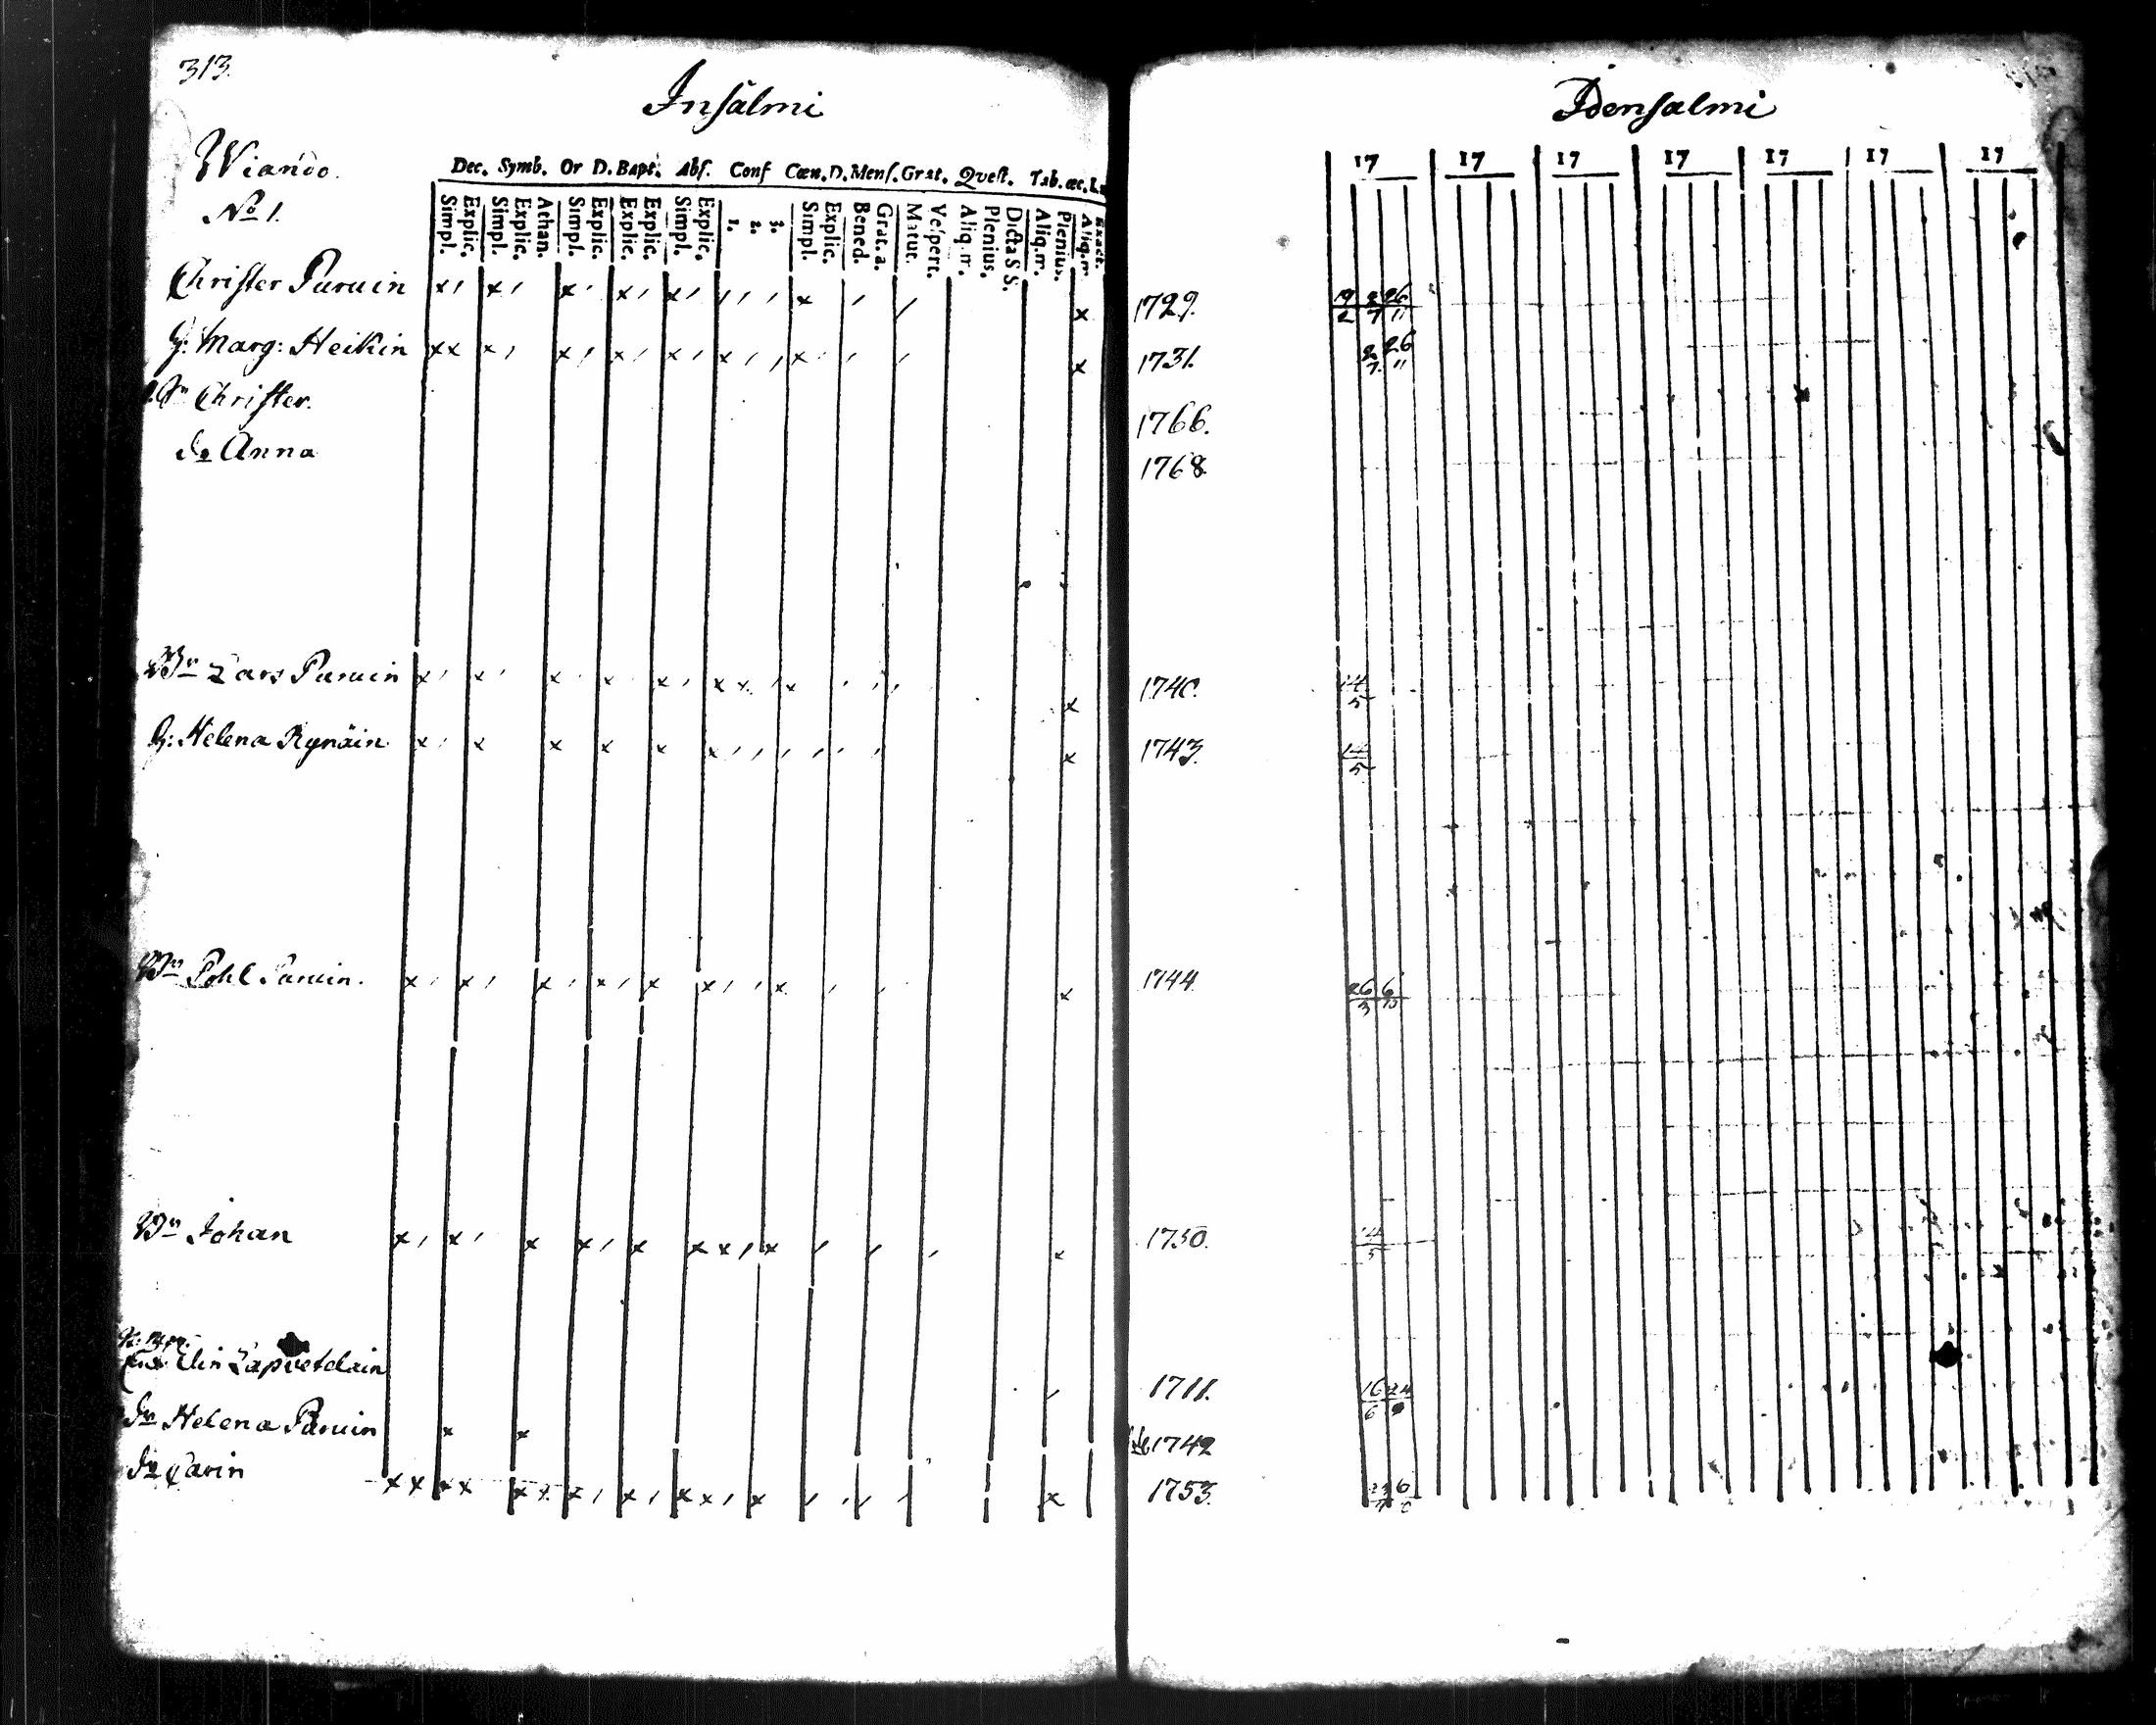 313.
Insalmi
Wiando.
No 1.
Dec. Symb. Or D. Bapt. Abs. Conf Cœn. D. Mens. Grat. Qvest. Tab. œc.
Simpl. Explic. Simpl. Explic. Athan. Simpl. Explic. Explic. Explic. Simpl. Explic. 1. 2. 3. Simpl. Explic. Bened. Grat. a. Matut. Vespert. Aliq.m. Plenius. Dicta S S. Aliq.m. Plenius. Exact. Aliq.m
Christer Paruin
H: Marg: Heikin
Sn Christer.
do Anna
Bn Lars Paruin
H: Helena Rynäin
Bn Pohl Paruin.
Bn Johan
Elin Lapvetelain
dr Helena Paruin
dr Carin
Idensalmi
17 17 17 17 17 17 17
1729. 19/2 2/7 26/11
1731. 2/7 26/11
1766.
1768
1740. 14/5
1743. 14/5
1744 26/3 6/10
1750. 14/5
1711. 16/6
1742
1753.